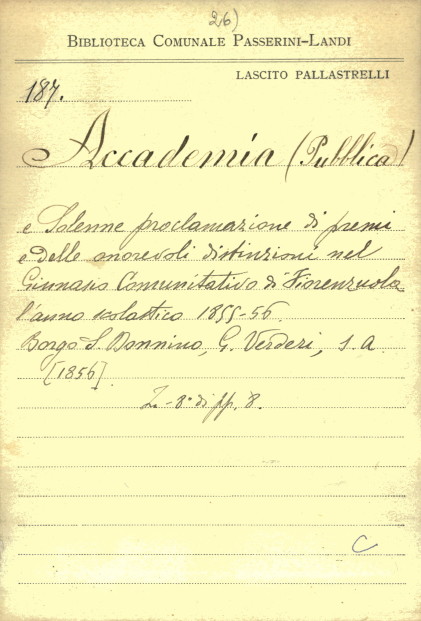 26)
BIBLIOTECA COMUNALE PASSERINI-LANDI
LASCITO PALLASTRELLI
187.
Accademia (Pubblica)
e Solenne proclamazione di premi
e delle onorevoli distinzioni nel
Ginnasio Comunitativo di Fiorenzuola
l'anno scolastico 1855-56.
Borgo S. Donnino, G. Verderi, s. a.
[1856].
in-8° di pp. 8.
C